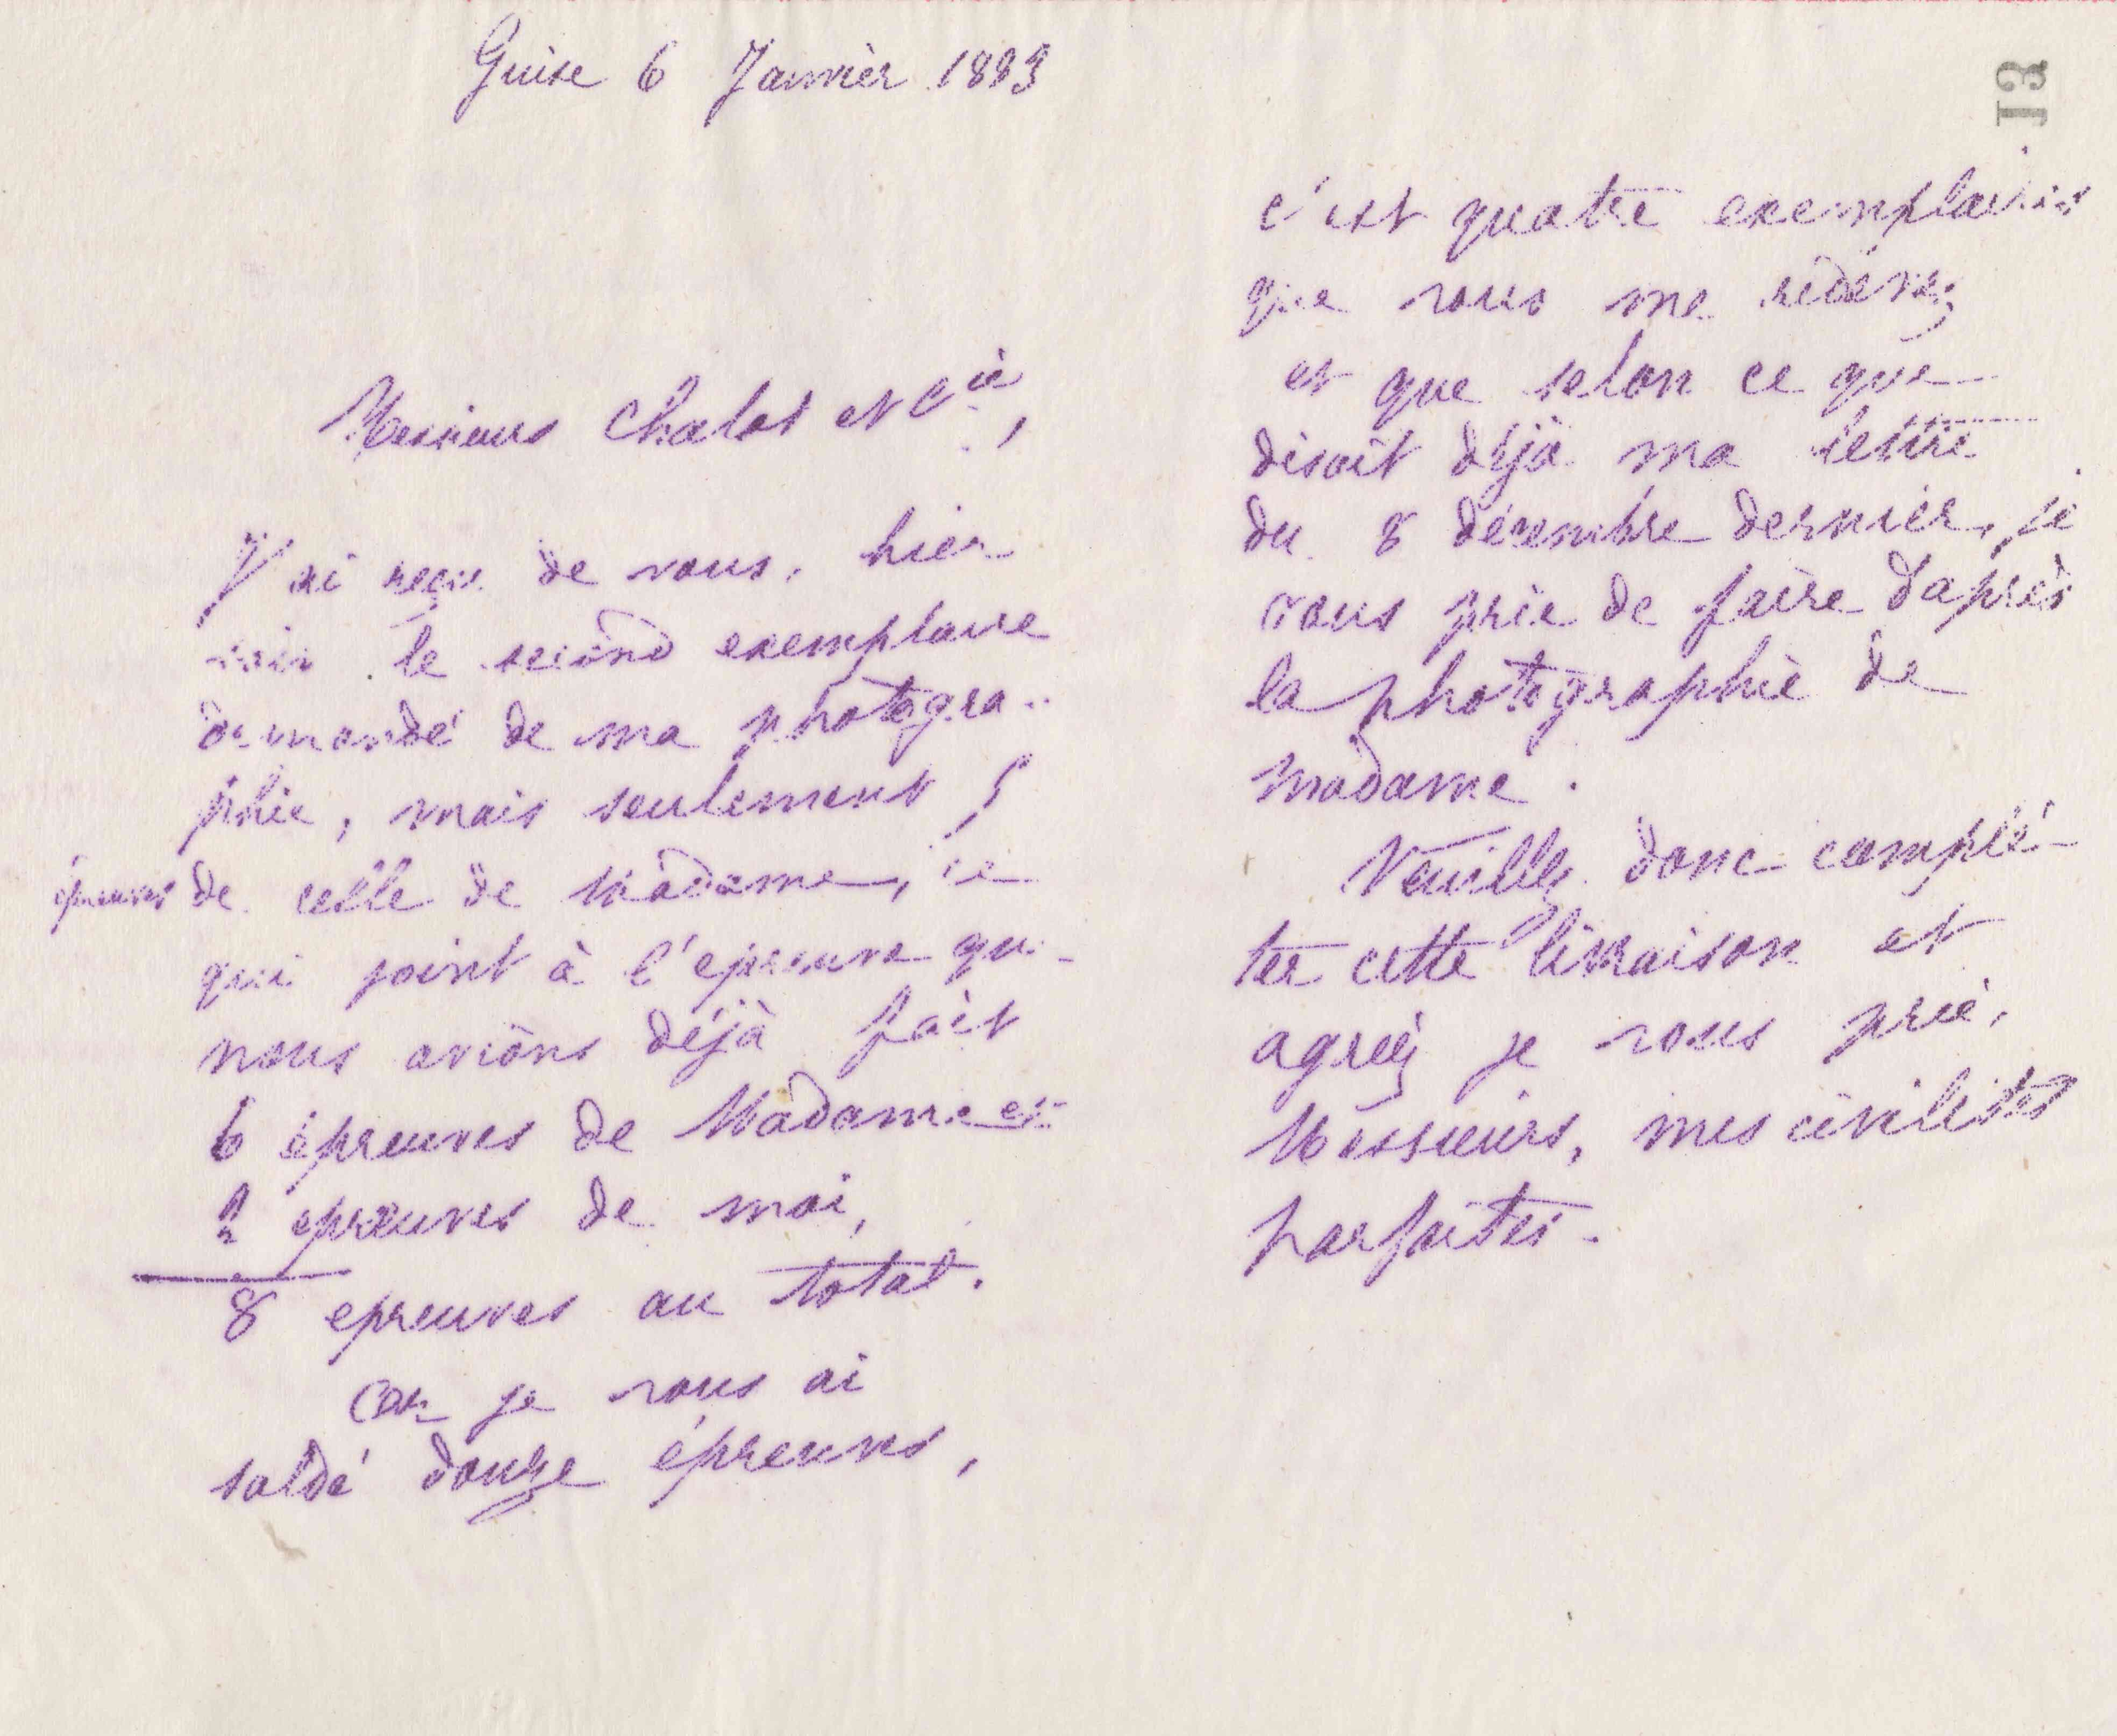 Guise 6 Janvier 1883
Messieurs Chalot et Cie,
J'ai reçu de vous, hier
soir le second exemplaire
demandé de ma photogra-
phie, mais seulement 5
épreuves de celle de Madame, ce
qui joint à l'épreuve que
nous avions déjà fait
6 épreuves de Madame et
2 epreuves de moi,
8 epreuves au total.
Or je vous ai
soldé douze épreuves,
13
c'est quatre exemplaires
que vous me redevez
et que selon ce que
disait déjà ma lettre
du 8 décembre dernier, je
vous prie de faire d'après
la photographie de
Madame.
Veuillez donc complé-
ter cette livraison et
agréez je vous prie,
Messieurs, mes civilités
parfaites.